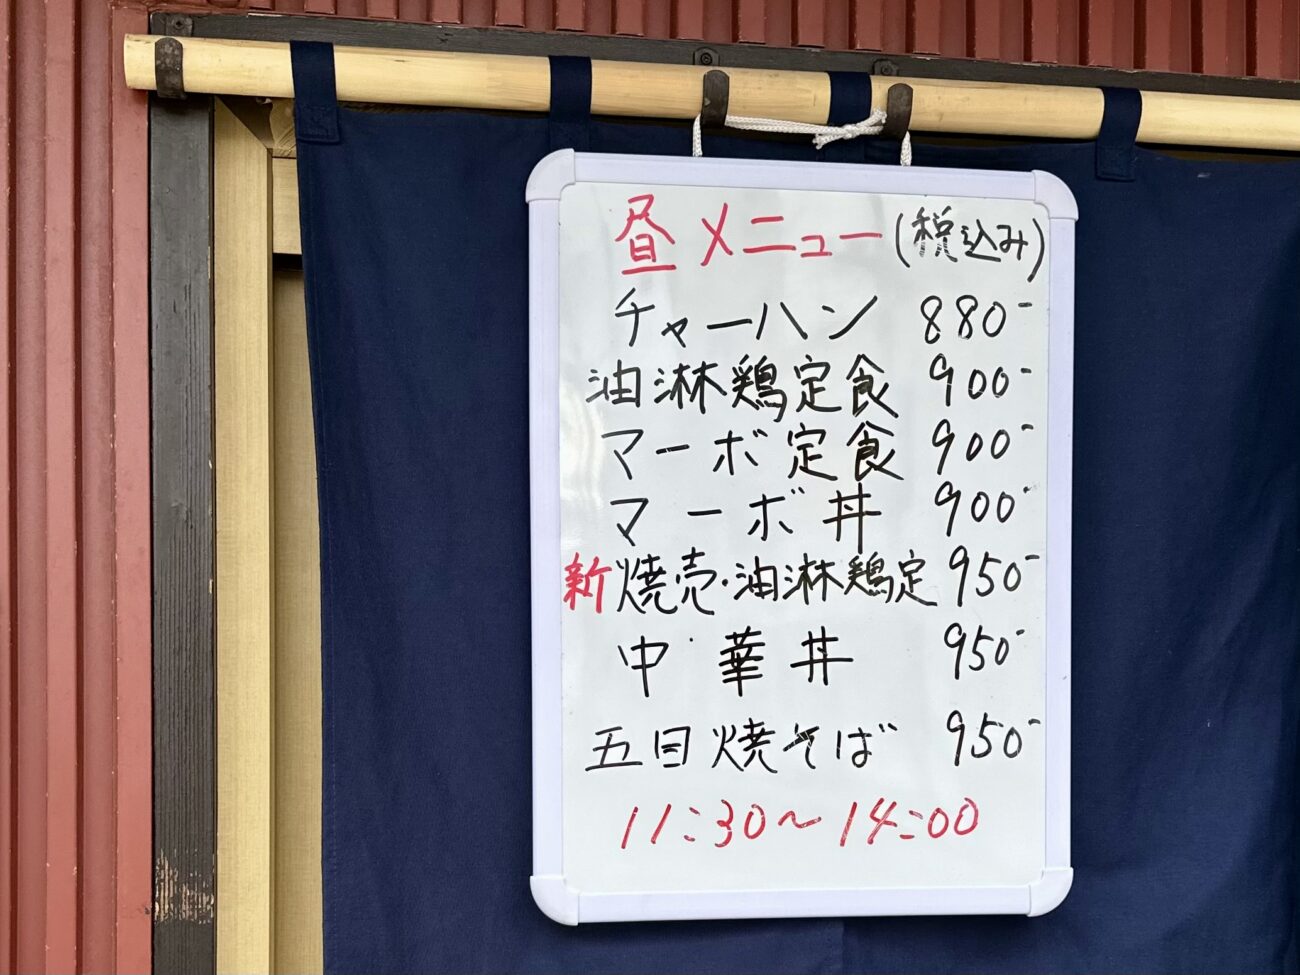 昼メニュー(税込み)
チャーハン 880-
油淋鶏定食 900-
マーボ定食 900-
マーボ丼 900-
新焼売・油淋鶏定 950-
中華丼 950-
五目焼そば 950-
11:30〜14:00